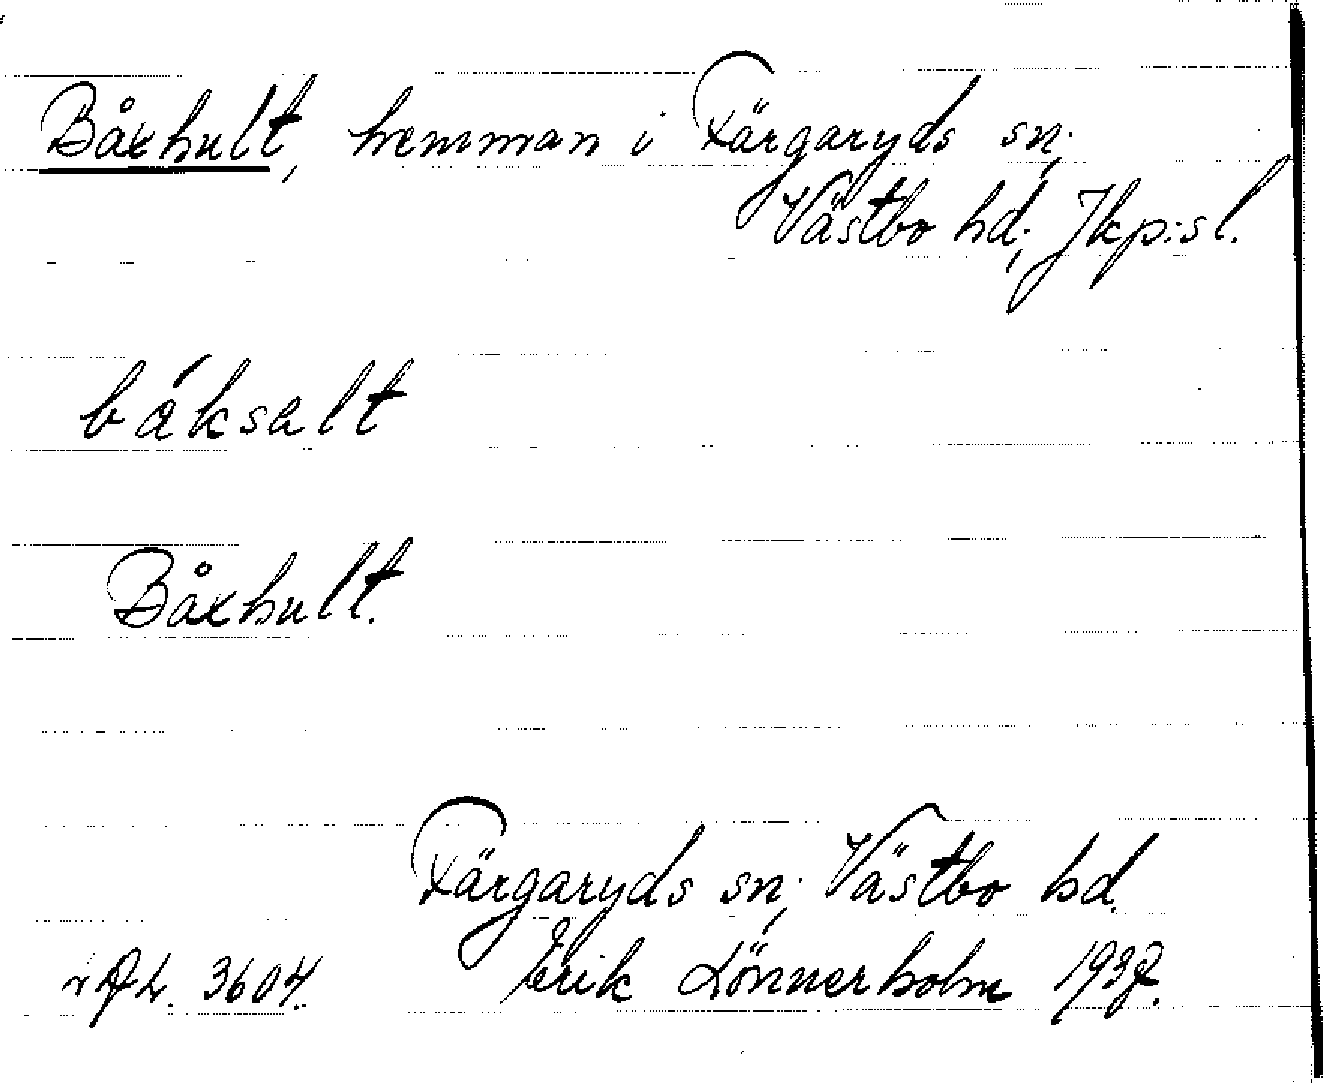 Båxhult, hemman i Färgaryds sn;
Västbo hd; Jkp:sl.
báksalt
Båxhult.
Färgaryds sn; Västbo hd.
3604. Erik Lönnerholm 1937.